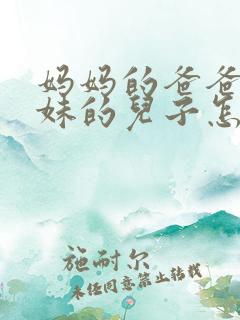 妈妈的爸爸
妹的兒子怎
施耐尔
未任同意禁止转载